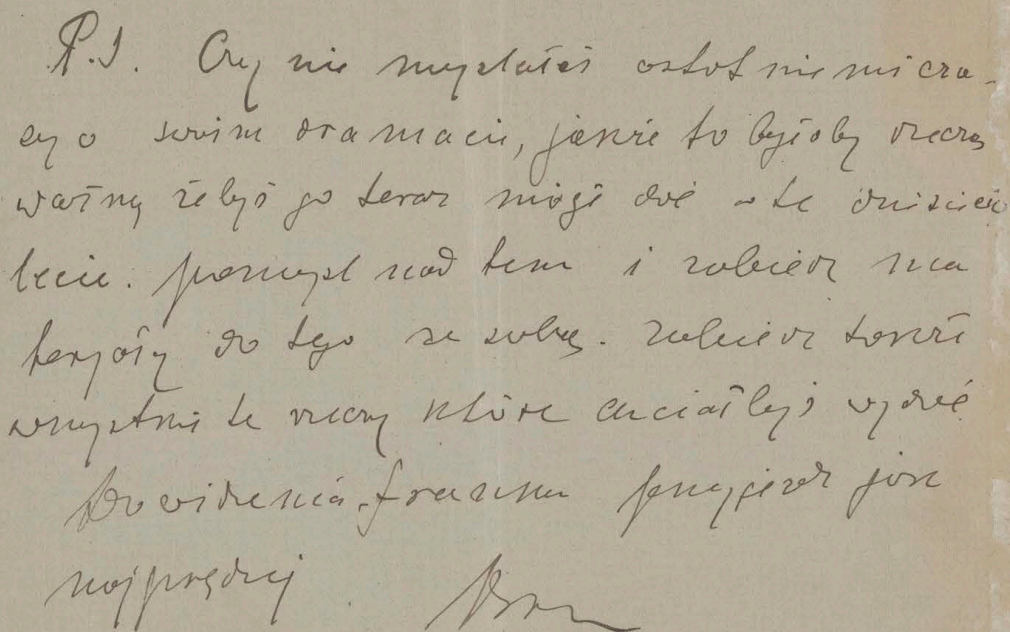 P.S. Czy nie myślałeś ostatniemi cza-
sy o swoim dramacie, jakże to byłoby rzeczą
ważną żebyś go teraz mógł dać na te dziesięcio
lecie. pomyśl nad tem i zabierz ma
terjały do tego ze sobą. zabierz także
wszystkie te rzeczy które chciałbyś wydać
Do widzenia, Franku przyjedź jak
najprędzej